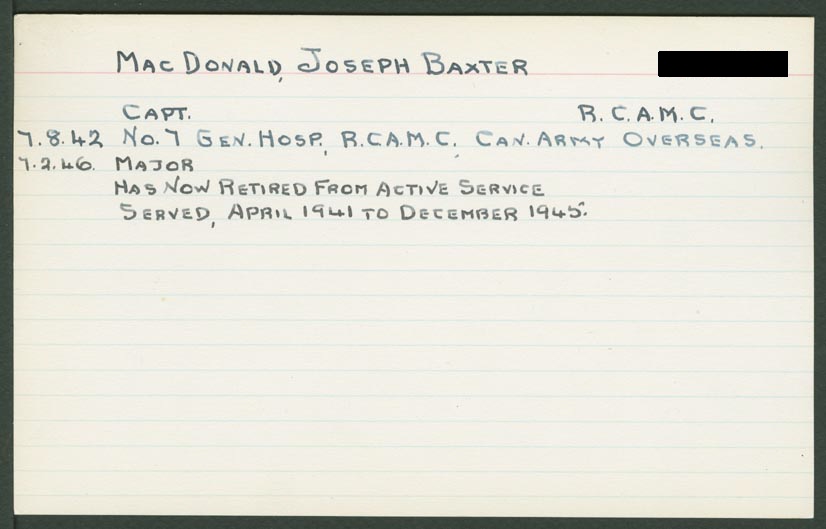 MacDonald, Joseph Baxter
Capt. R.C.A.M.C.
7.8.42 No. 7 Gen. Hosp., R.C.A.M.C., Can. Army Overseas.
7.2.46. Major
Has Now Retired From Active Service
Served, April 1941 to December 1945.